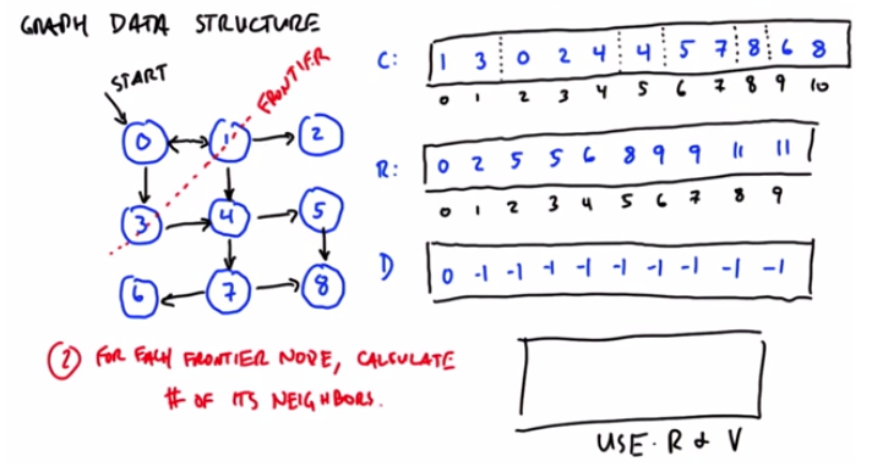 GRAPH DATA STRUCTURE
START
FRONTIER
0 1 2
3 4 5
6 7 8
C: 1 3 0 2 4 4 5 7 8 6 8
0 1 2 3 4 5 6 7 8 9 10
R: 0 2 5 5 6 8 9 9 11 11
0 1 2 3 4 5 6 7 8 9
D 0 -1 -1 -1 -1 -1 -1 -1 -1 -1
② FOR EACH FRONTIER NODE, CALCULATE
# OF ITS NEIGHBORS.
USE. R & V